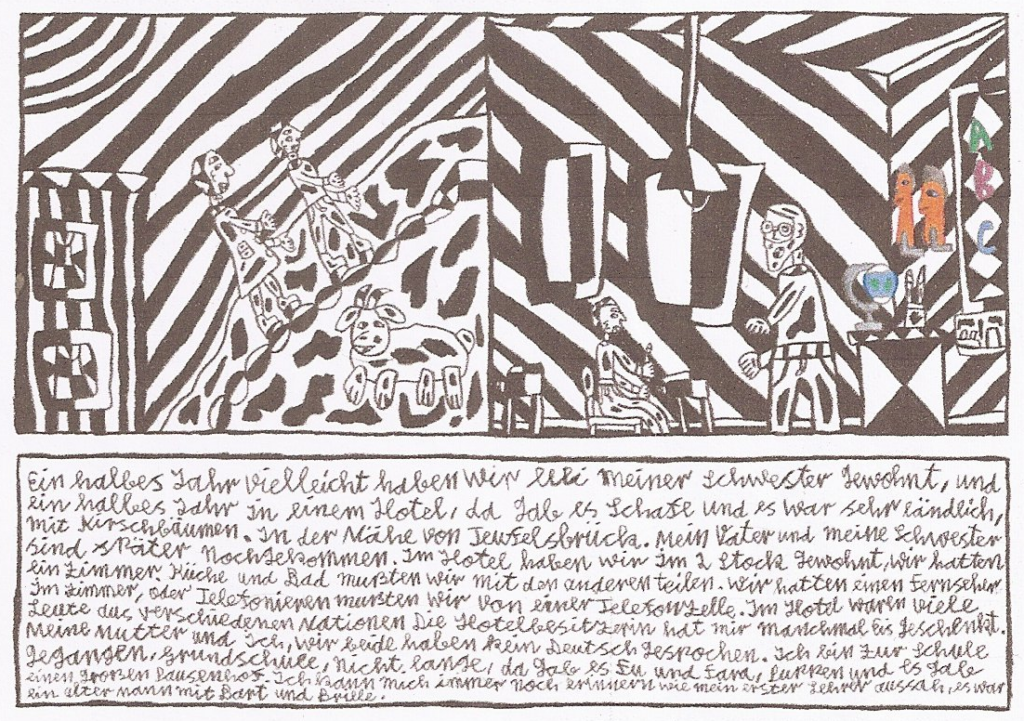 A
B
C
Ein halbes Jahr vielleicht haben wir bei meiner Schwester gewohnt, und
ein halbes Jahr in einem Hotel, da gab es Schafe und es war sehr ländlich,
mit Kirschbäumen. In der Nähe von Teufelsbrück. Mein Vater und meine Schwester
sind später nachgekommen. Im Hotel haben wir im 2 Stock gewohnt, wir hatten
ein Zimmer. Küche und Bad mußten wir mit den anderen teilen. Wir hatten einen Fernseher
im Zimmer, oder Telefonieren mußten wir von einer Telefonzelle. Im Hotel waren viele
Leute aus verschiedenen Nationen Die Hotelbesitzerin hat mir manchmal Eis geschenkt.
Meine Mutter und Ich, wir beide haben kein Deutsch gesprochen. Ich bin zur Schule
gegangen, Grundschule, nicht lange, da gab es Fu und Fara, und es gab
einen großen Pausenhof. Ich kann mich immer noch erinnern wie mein erster Lehrer aussah, es war
ein alter mann mit Bart und Brille.